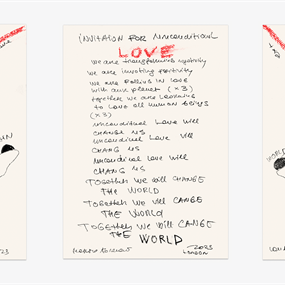 INVITATION FOR UNCONDITIONAL
LOVE
we are transforming
we are inviting positivity
we are falling in love
with our planet (x3)
together we are learning
to love all human beings
(x3)
unconditional love will
change us
unconditional love will
chang us
unconditional love will
change us
Together we will CHANGE
THE WORLD
Together we will CANGE
THE WORLD
Together we will CANGE
THE WORLD
2023
LONDON